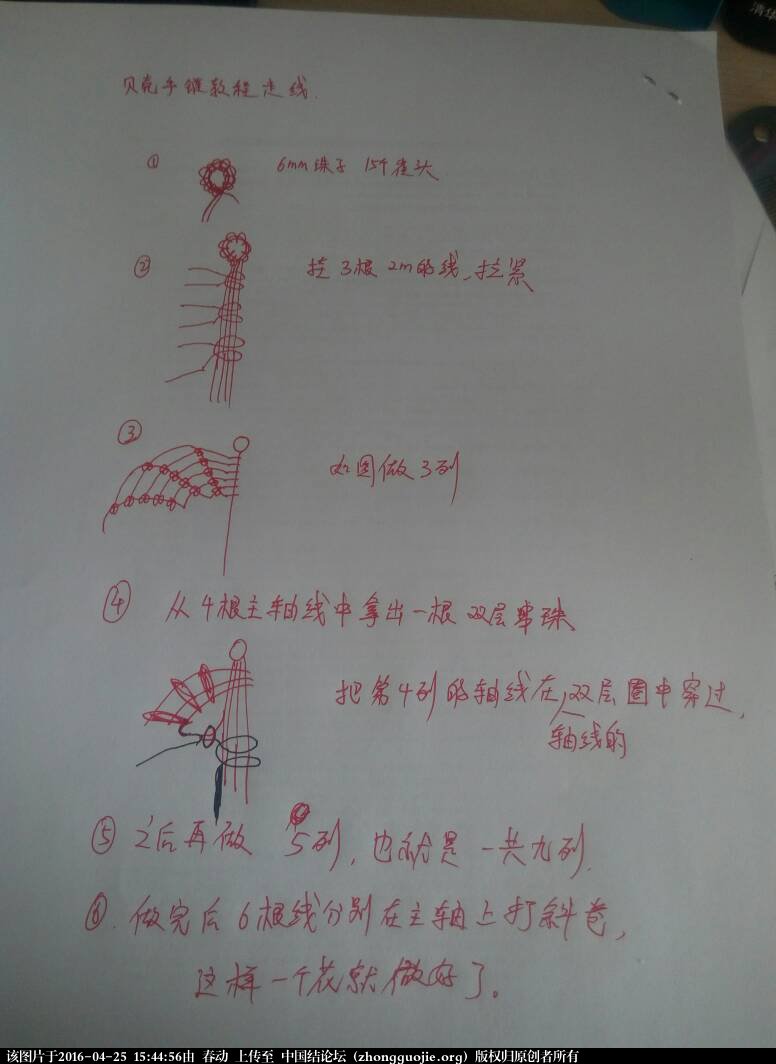 贝壳手链教程走线.
① 6mm珠子 15个雀头
② 挂3根2m的线、拉紧
③ 如图做3列
④ 从4根主轴线中拿出一根双层串珠、
把第4列的轴线在双层圈中穿过,
轴线的
⑤ 之后再做 5列, 也就是一共九列.
⑥. 做完后6根线分别在主轴上打斜卷,
这样一个花就做好了。
清华
该图片于2016-04-25 15:44:56由 春动 上传至 中国结论坛 (zhongguojie.org) 版权归原创者所有